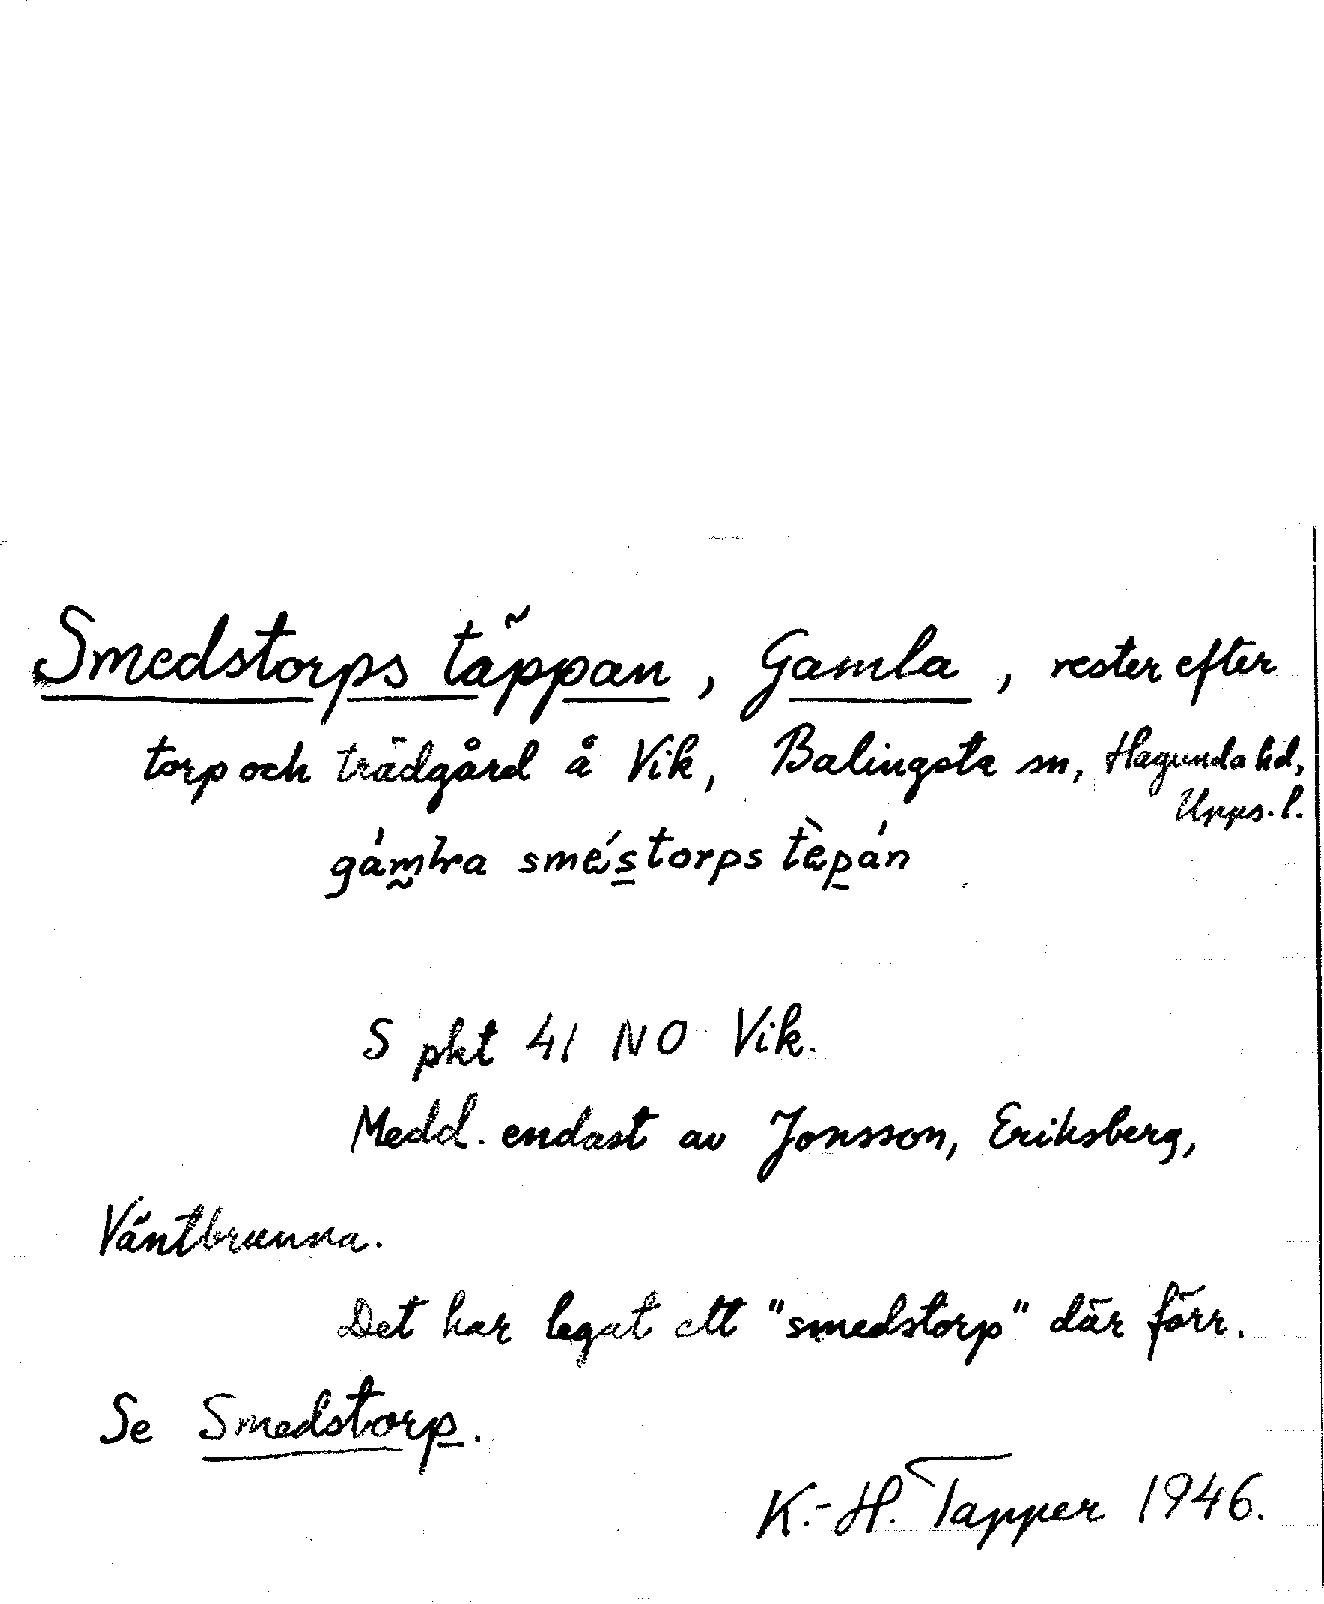 Smedstorps täppan, Gamla, rester efter
torp och trädgård å Vik, Balingsta sn, Hagunda hd,
Upps. l.
gám̰ḷra smés̱torps tèp̱án
S pkt 41 NO Vik.
Medd. endast av Jonsson, Eriksberg,
Väntbrunna.
Det har legat ett "smedstorp" där förr.
Se Smedstorp.
K.-H. Tapper 1946.